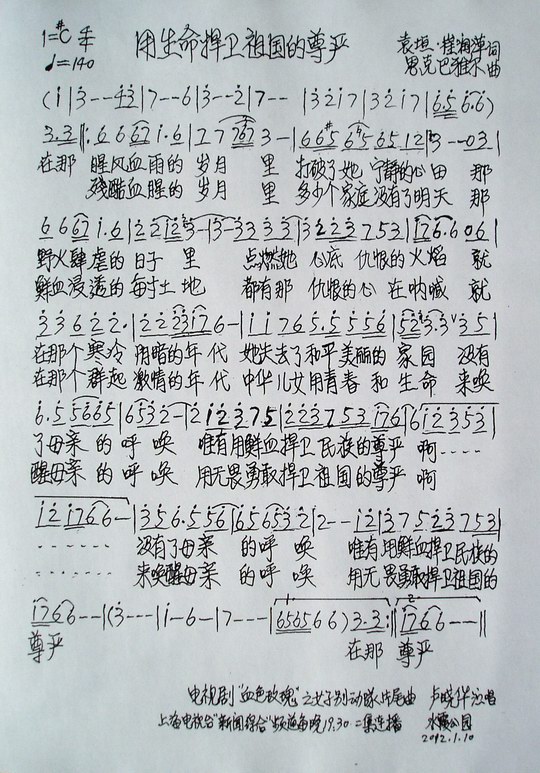 1=#C 4/4 用生命捍卫祖国的尊严 袁垣·崔润萍词
♩=140 思克巴雅尔曲
(i|3---43|7--6|3--2|7--|3217|3217|6·5 6·6)
3·3‖:6 6 67 1·6|2 7 767 3-|665 6565 12|3--03|
在那 腥风血雨的 岁月 里 打破了她 宁静的心田 那
残酷血腥的 岁月 里 多少个家庭没有了明天 那
6 6 67 1·6|22123-|3-3333|3223753|176·606|
野火肆虐的 日子 里 点燃她 心底 仇恨的火焰 就
鲜血浸透的 每寸土地 都有那 仇恨的心 在呐喊 就
33622·|2223176-|11765·5556|523·3 35|
在那个寒冷 阴暗的年代 她失去了和平美丽的 家园 没有
在那个群起 激情的年代 中华儿女用青春 和 生命 来唤
6·55665|6532-|212375|223753176|612353|
了母亲 的 呼 唤 唯有用鲜血捍卫民族的尊严 啊----
醒母亲 的 呼 唤 用无畏勇敢捍卫祖国的尊严 啊
121766-|356·556|656532|2--12|37523753|
------ 没有了母亲 的呼 唤 唯有用鲜血捍卫民族的
------ 来唤醒母亲 的呼 唤 用无畏勇敢捍卫祖国的
1766--|(3---|1-6-|7---|656566)3·3:‖1766--‖
尊严 在那 尊严
电视剧"血色玫瑰"之女子别动队片尾曲 卢晓华记唱
上海电视台"新闻综合"频道每晚19.30二集连播 水霞公园
2012.1.10